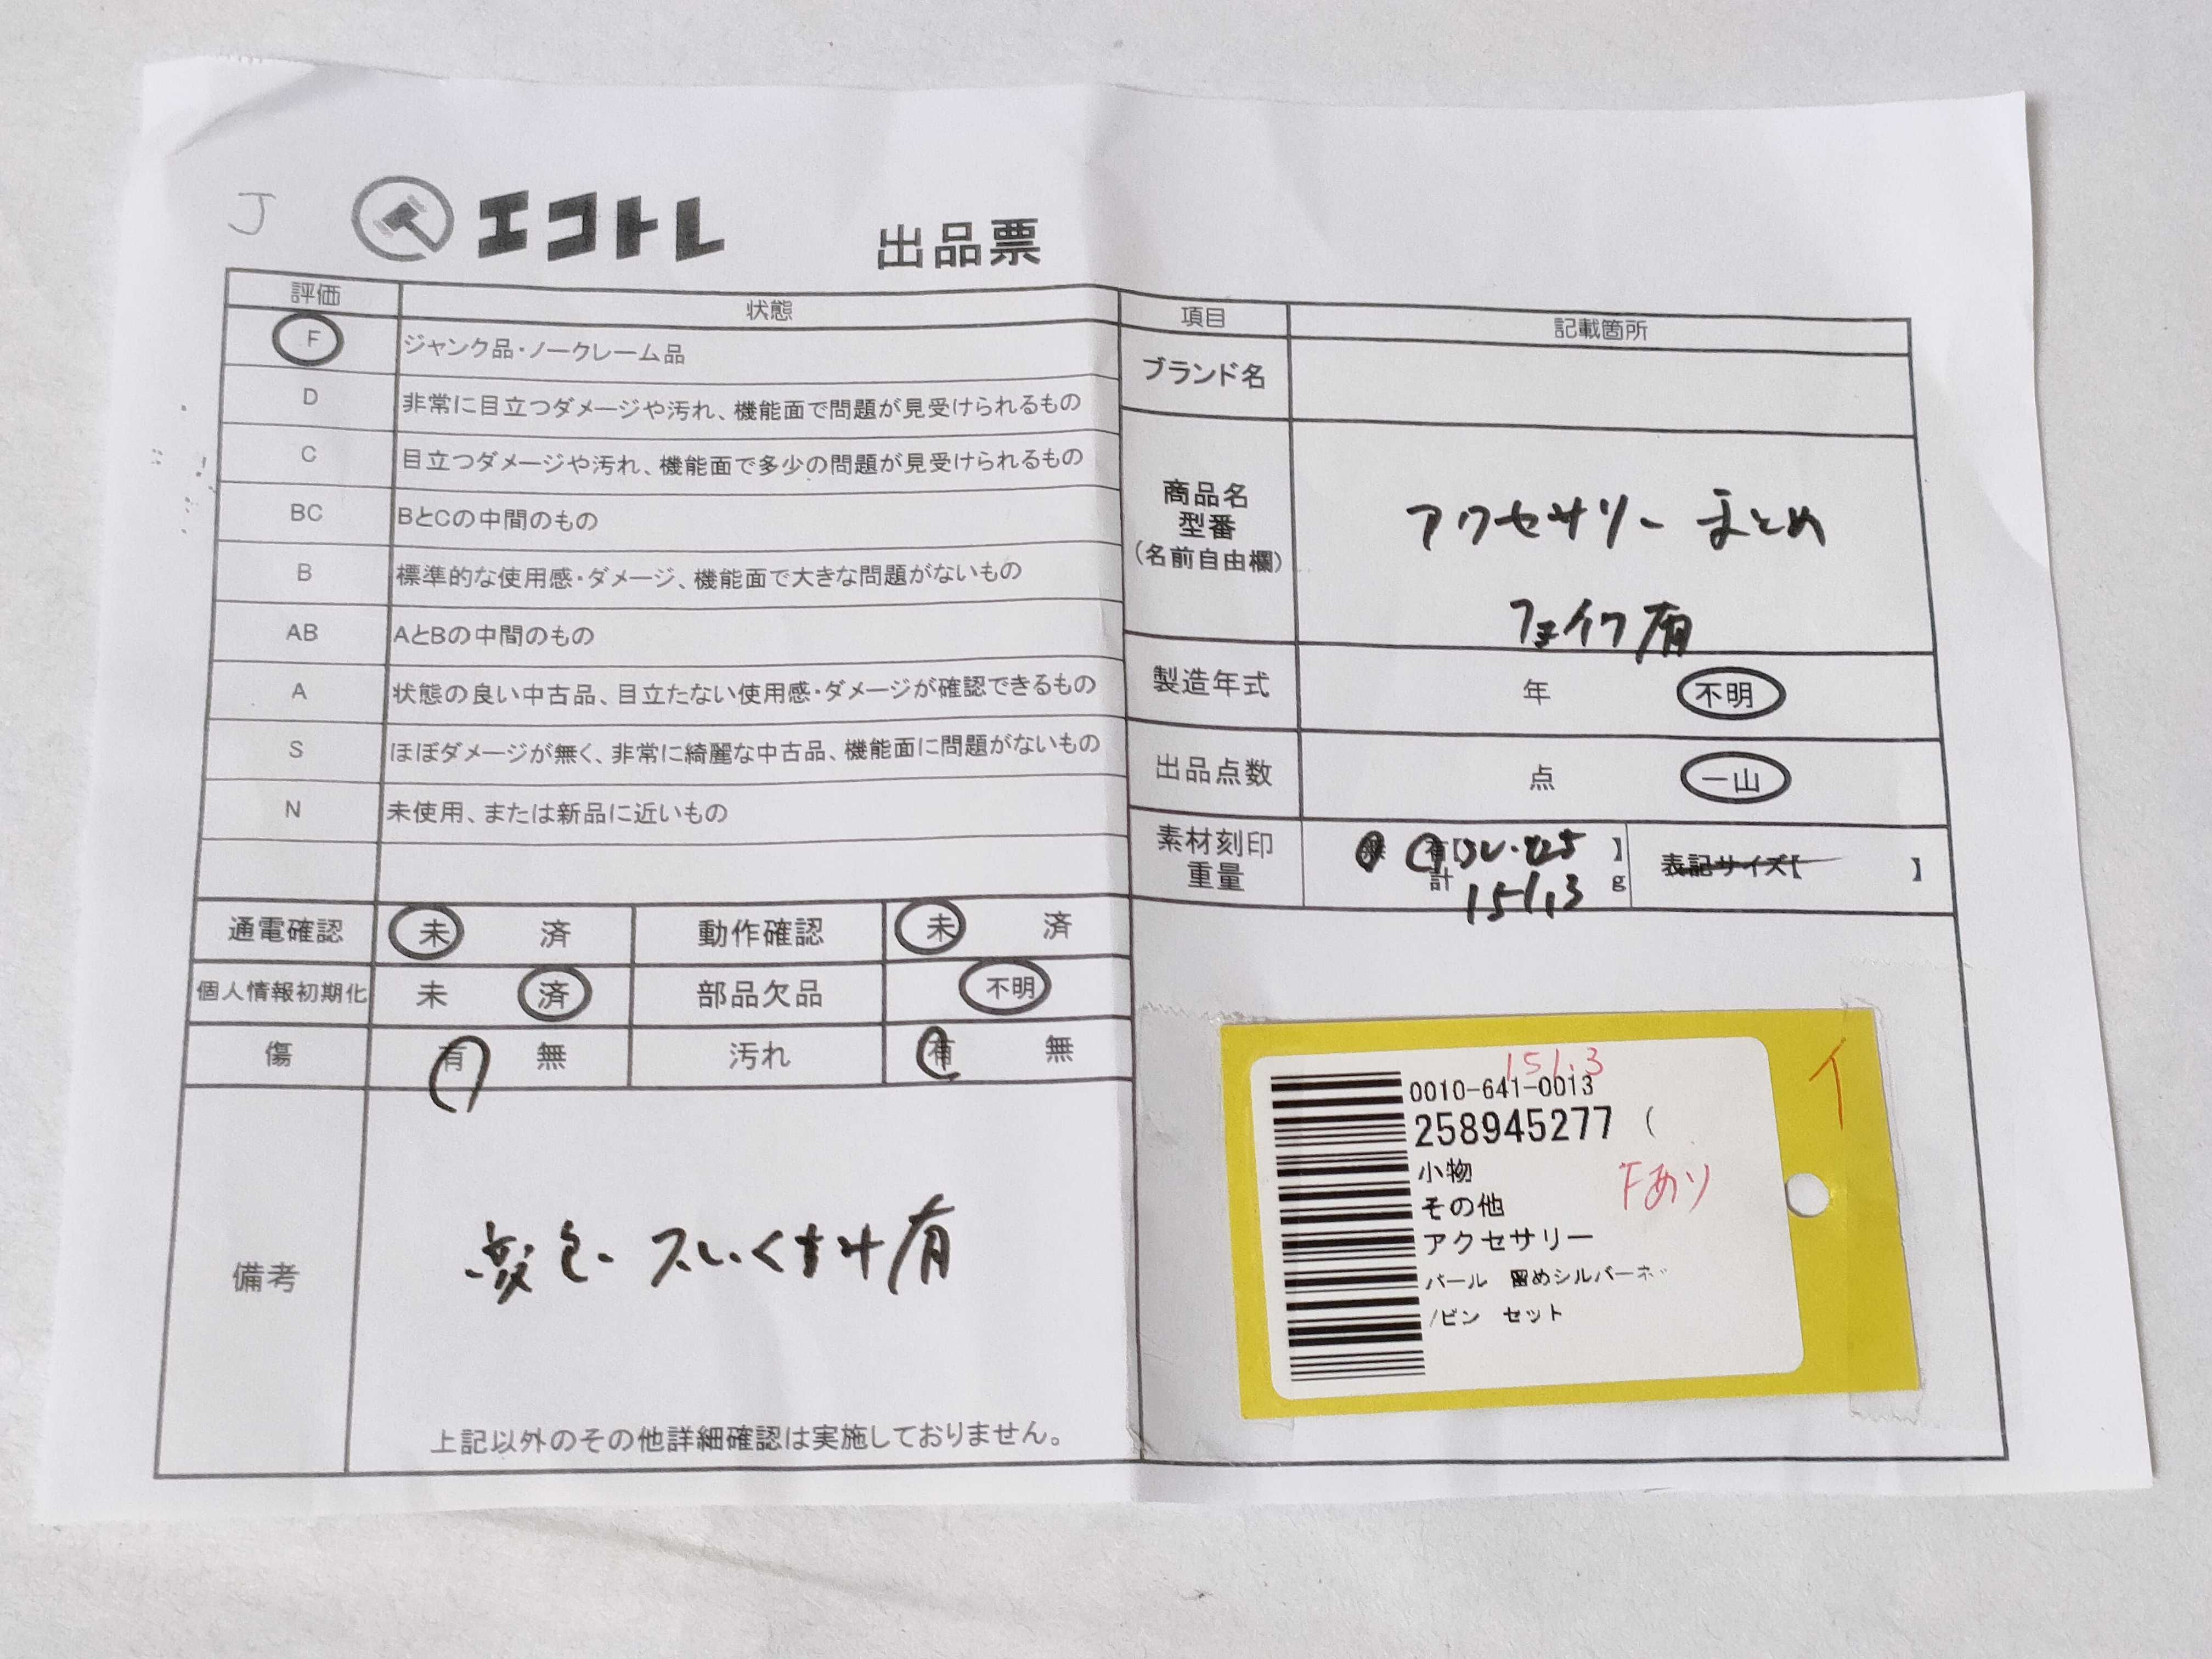 J
エコトレ 出品票
評価 状態
F ジャンク品・ノークレーム品
D 非常に目立つダメージや汚れ、機能面で問題が見受けられるもの
C 目立つダメージや汚れ、機能面で多少の問題が見受けられるもの
BC BとCの中間のもの
B 標準的な使用感・ダメージ、機能面で大きな問題がないもの
AB AとBの中間のもの
A 状態の良い中古品、目立たない使用感・ダメージが確認できるもの
S ほぼダメージが無く、非常に綺麗な中古品、機能面に問題がないもの
N 未使用、または新品に近いもの
通電確認 未 済 動作確認 未 済
個人情報初期化 未 済 部品欠品 不明
傷 有 無 汚れ 有 無
備考
変色・スレ・くすみ有
上記以外のその他詳細確認は実施しておりません。
項目 記載箇所
ブランド名
商品名
型番
(名前自由欄)
アクセサリー まとめ
フェイク有
製造年式 年 不明
出品点数 点 一山
素材刻印 有【 】
重量 計 151.3 g
表記サイズ【 】
151.3
0010-641-0013
258945277 (
小物
Fあり
その他
アクセサリー
パール 留めシルバーネ
/ピン セット
イ